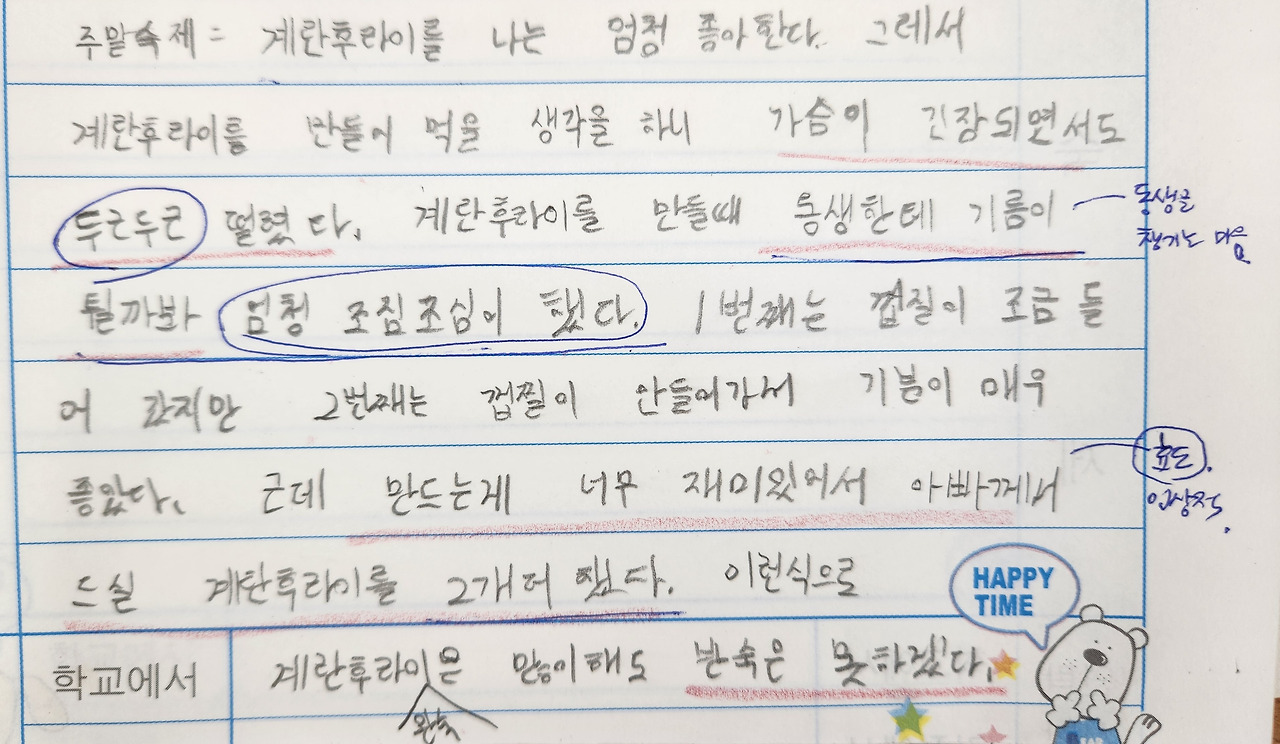 주말숙제= 계란후라이를 나는 엄청 좋아한다. 그레서
계란후라이를 만들어 먹을 생각을 하니 가슴이 긴장되면서도
두근두근 떨렸다. 계란후라이를 만들때 동생한테 기름이
동생을
챙기는 마음
튈까봐 엄청 조심조심이 했다. 1번째는 껍질이 조금 들
어 갔지만 2번째는 껍찔이 안들어가서 기분이 매우
좋았다. 근데 만드는게 너무 재미있어서 아빠께서
효도.
인상적.
드실 계란후라이를 2개더 했다. 이런식으로
HAPPY
TIME
학교에서 계란후라이은 많이해도 반숙은 못하겠다.
완숙